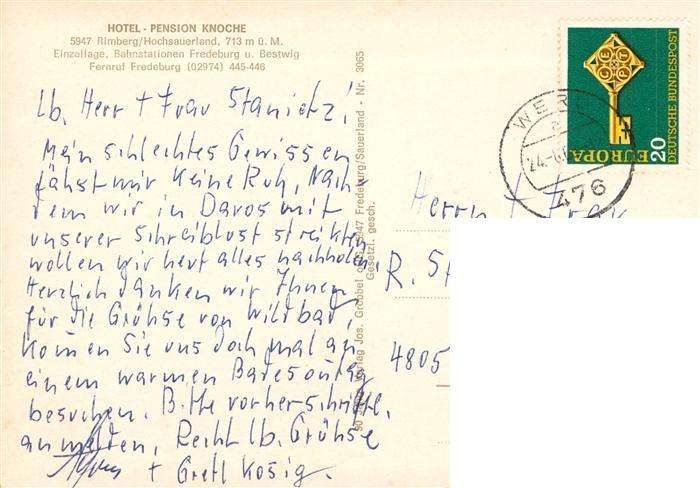 HOTEL - PENSION KNOCHE
5947 Rimberg/Hochsauerland, 713 m ü. M.
Einzellage, Bahnstationen Fredeburg u. Bestwig
Fernruf Fredeburg (02974) 445-446
lb. Herr + Frau Stanietz!
Mein schlechtes Gewissen
läßst mir keine Ruh, Nach-
dem wir in Davos mit
unserer Schreiblust streikten
wollen wir heut alles nachholen.
Herzlich danken wir Ihnen
für die Grühse von Wildbad,
Kommen Sie uns doch mal an
einem warmen Badesonntag
besuchen. Bitte vorher schriftl.
anmelden, Recht lb. Grühse
+ Gretl Kosig.
Verlag Jos. Grobbel 5947 Fredeburg/Sauerland - Nr. 3065
Gesetzl. gesch.
WER
24.-6
476
EUROPA
CEPT
20
DEUTSCHE BUNDESPOST
Herrn + Frau
R. St
4805